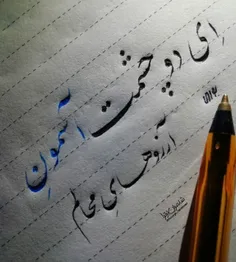 ای دو چشمت آسمونِ
آرزوهایِ محالم